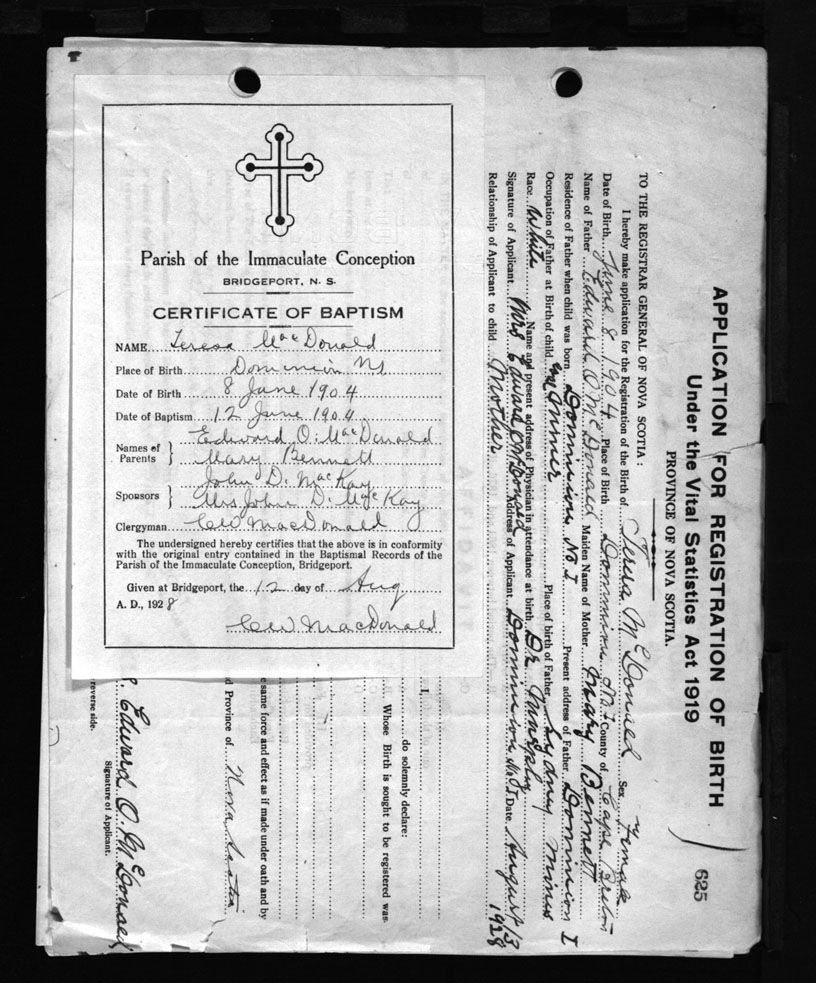 Parish of the Immaculate Conception
BRIDGEPORT, N. S.
CERTIFICATE OF BAPTISM
NAME Teresa MacDonald
Place of Birth Dominion NS
Date of Birth 8 June 1904
Date of Baptism 12 June 1904
Names of Parents } Edward O. MacDonald
Mary Bennett
Sponsors } John D. MacKay
Mrs John D. MacKay
Clergyman CW MacDonald
The undersigned hereby certifies that the above is in conformity
with the original entry contained in the Baptismal Records of the
Parish of the Immaculate Conception, Bridgeport.
Given at Bridgeport, the 12 day of Aug
A. D., 1928
CW MacDonald
625
APPLICATION FOR REGISTRATION OF BIRTH
Under the Vital Statistics Act 1919
PROVINCE OF NOVA SCOTIA.
TO THE REGISTRAR GENERAL OF NOVA SCOTIA:
I hereby make application for the Registration of the Birth of Teresa McDonald Sex Female
Date of Birth June 8 1904 Place of Birth Dominion No 1 County of Cape Breton
Name of Father Edward O McDonald Maiden Name of Mother Mary Bennett
Residence of Father when child was born Dominion No 1 Present address of Father Dominion 1
Occupation of Father at Birth of child Miner Place of birth of Father Sydney Mines
Race White Name and present address of Physician in attendance at birth Dr. Murphy
Signature of Applicant Mrs Edward O McDonald Address of Applicant Dominion No 1 Date August 13 1928
Relationship of Applicant to child Mother
AFFIDAVIT
I,
do solemnly declare:
Whose Birth is sought to be registered was
e same force and effect as if made under oath and by
d Province of Nova Scotia
Edward O. McDonald
Signature of Applicant.
reverse side.